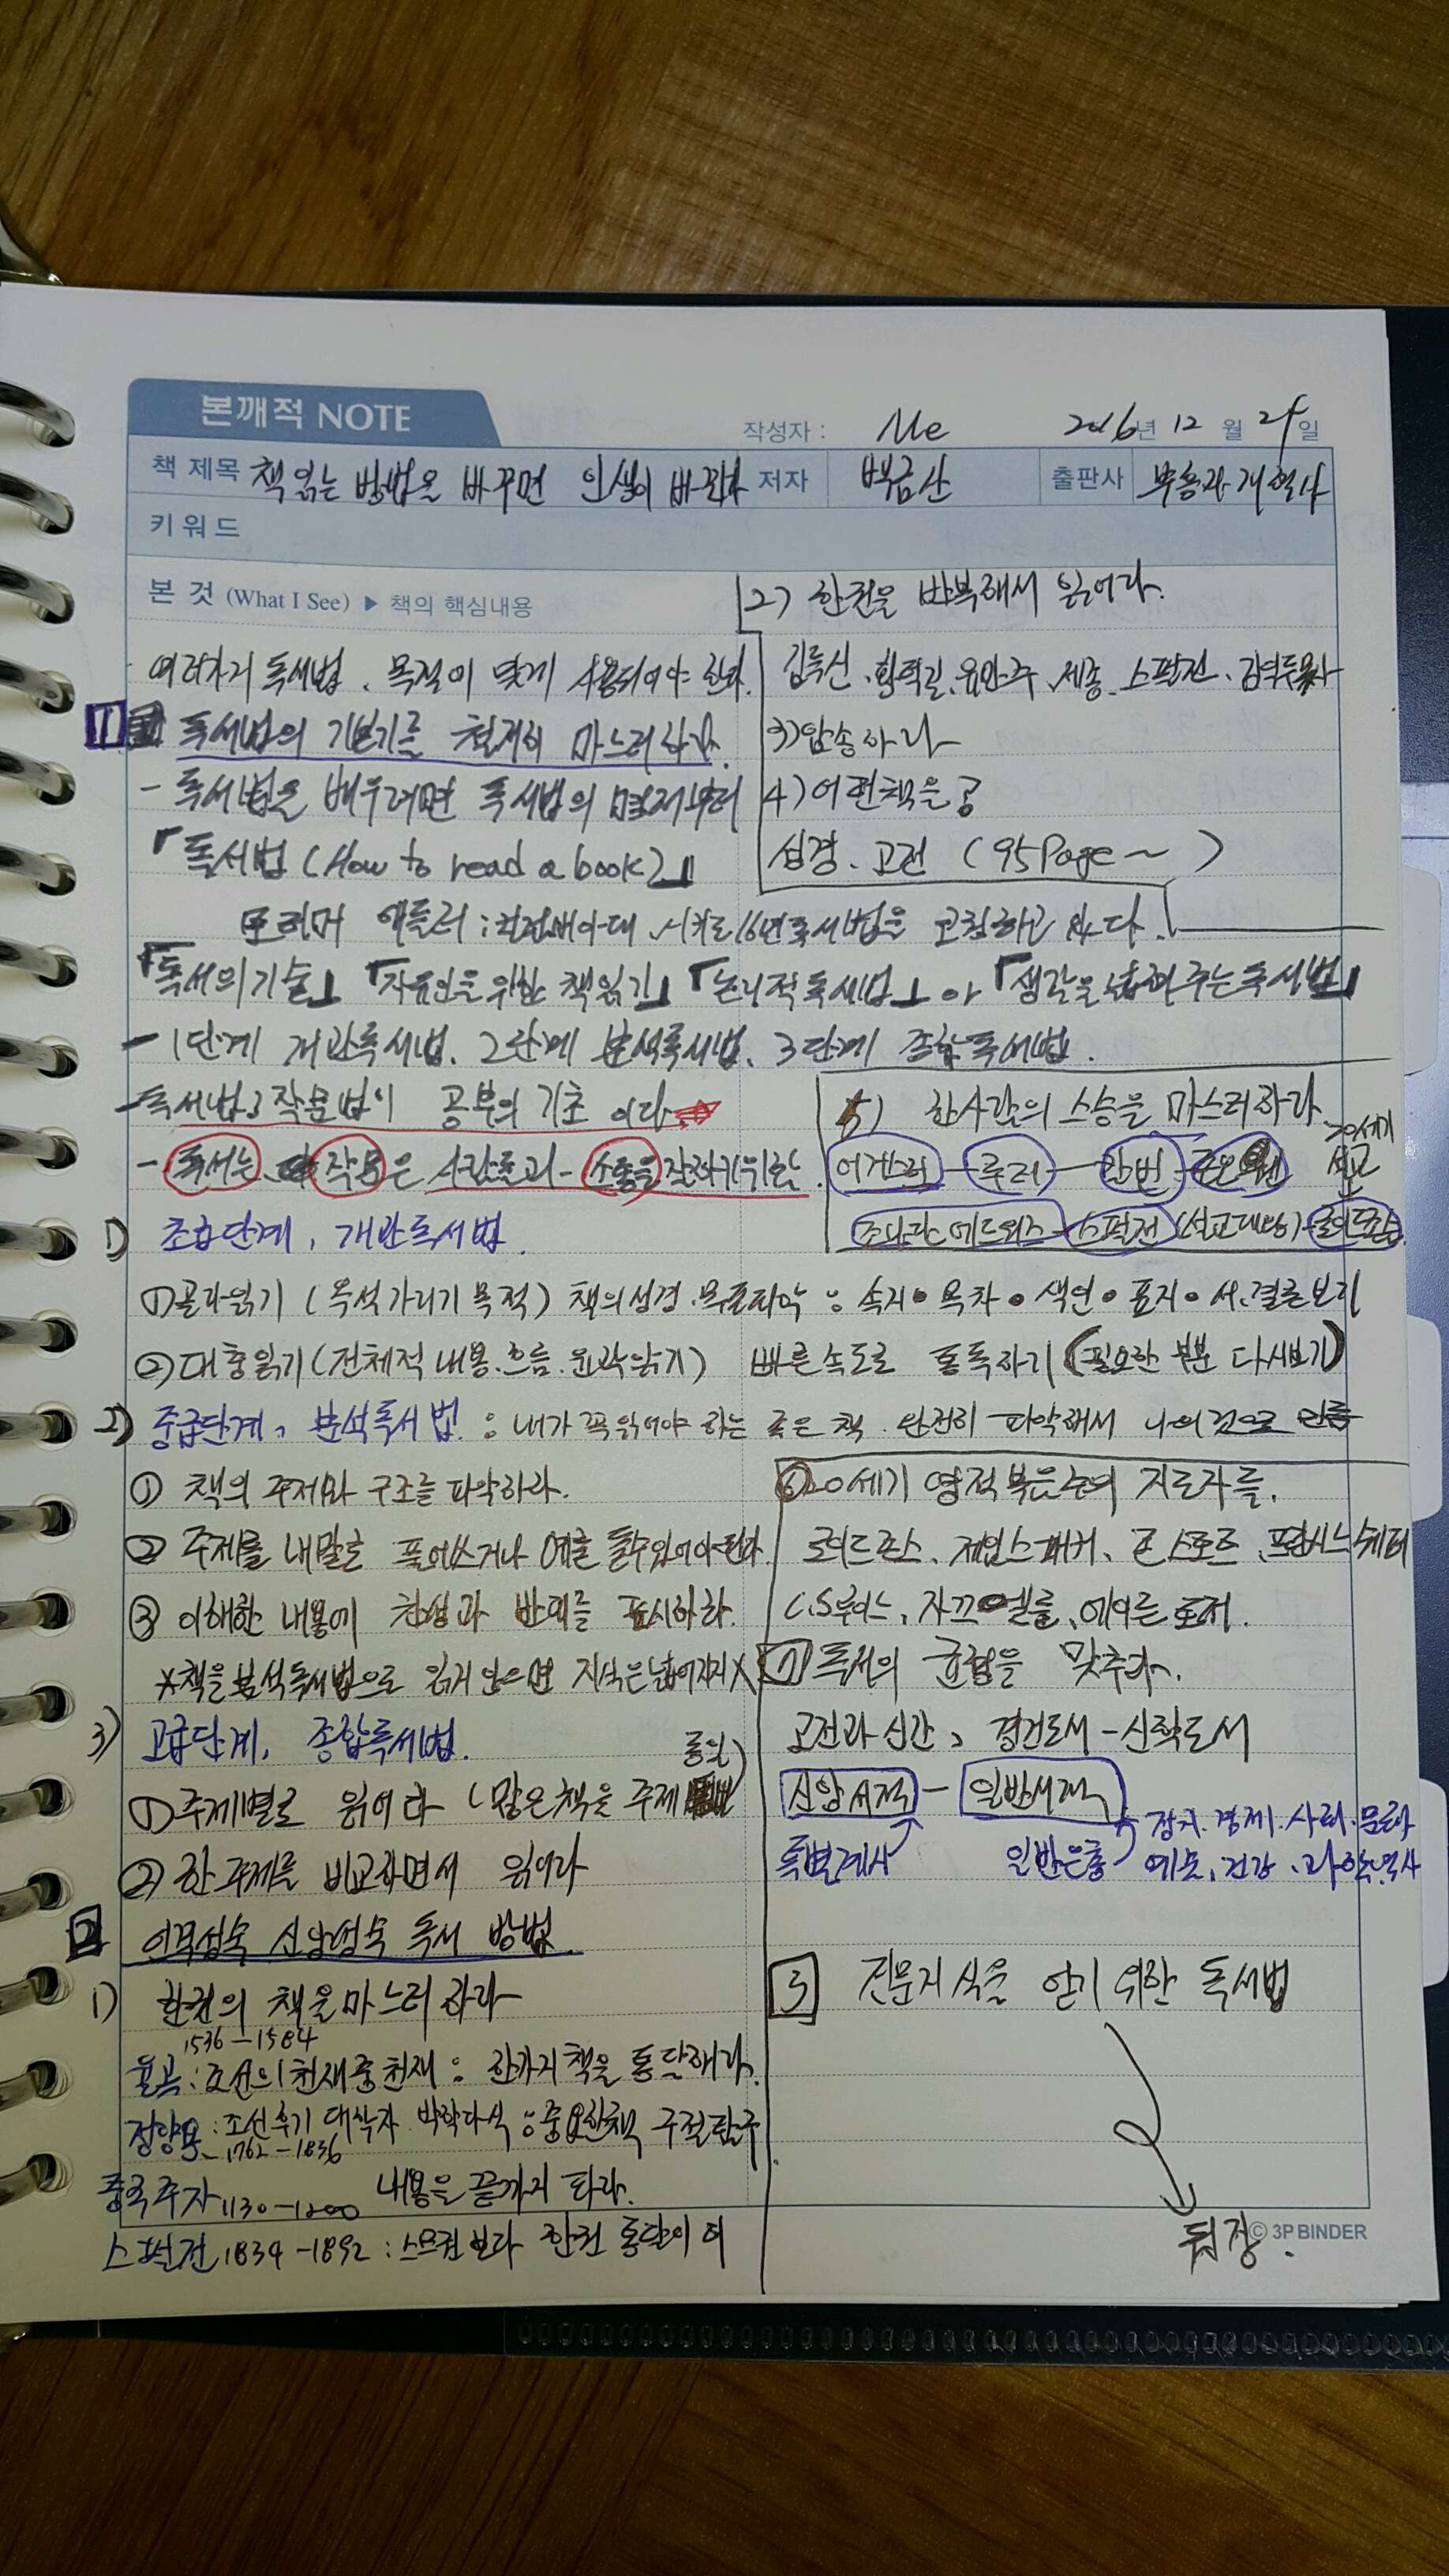 본깨적 NOTE
작성자 : Me 2016년 12 월 일
책 제목 책 읽는 방법을 바꾸면 인생이 바뀐다 저자 백금산 출판사 부흥과개혁사
키워드
본 것 (What I See) ▶ 책의 핵심내용
여러가지 독서법, 목적에 맞게 사용되어야 한다.
1 독서법의 기본기를 철저히 마스터하라.
- 독서법을 배우려면 독서법의 부터
『독서법 (How to read a book)』
모티머 애들러 :
『독서의 기술』 『자유인을 위한 책읽기』 『논리적독서법』 아 『생각을 넓혀주는 독서법』
- 1단계 개관독서법. 2단계 분석독서법. 3단계 종합독서법.
- 독서법, 작문법이 공부의 기초 이다
- 독서는 작문은 사람들과 - 소통을 잘하기위함.
1) 초급단계, 개관독서법.
① 골라읽기 (옥석가리기 목적) 책의성격.목표파악 : 속지 • 목차 • 색인 • 표지 • 서.결론보기
② 대충읽기 (전체적 내용.흐름.윤곽읽기) 빠른속도로 통독하기 (필요한 부분 다시보기)
2) 중급단계, 분석독서법. : 내가 꼭읽어야 하는 좋은 책. 완전히 파악해서 나의것으로 만듦
① 책의 주제와 구조를 파악하라.
② 주제를 내말로 풀어쓰거나 예를 들수있어야된다.
③ 이해한 내용에 찬성과 반대를 표시하라.
*책을 분석독서법으로 읽지 않으면 지식은넓어지지X
3) 고급단계, 종합독서법.
① 주제별로 읽어라 (많은책을 주제 통일)
② 한 주제를 비교하면서 읽어라
2 인격성숙 신앙성숙 독서 방법.
1) 한권의 책을마스터 하라
1536-1584
율곡 : 조선의 천재중천재 : 한가지책을 통달해라.
정약용 : 조선후기 대학자 박학다식 : 중요한책 구절탐구.
1762-1836
중국주자 1130-1200 내용을 끝까지 파라.
스펄전 1834-1892 : 스무권 보다 한권 통달이 더
2) 한권을 반복해서 읽어라.
김득신, 황덕길, 유만주, 세종, 스펄전,
3) 암송하라
4) 어떤책을 공
성경. 고전 (95Page~ )
5) 한사람의 스승을 마스터하라
20세기
루터 - 칼빈 - 존오웬 설교
조나단에드워즈 - 스펄전 (설교대왕) - 로이드존스
⑥ 20세기 영적 복음주의 지도자를.
로이드존스, 제임스패커, 존 스토트, 프란시스쉐퍼
C.S루이스, 자끄엘룰, 에이든 토저.
7) 독서의 균형을 맞추라.
고전과신간, 경건도서 - 신학도서
신앙서적 - 일반서적
특별계시 일반은총 정치.경제.사회.문화
예술.건강.과학.역사
3 전문지식을 얻기 위한 독서법
뒷장.
© 3P BINDER